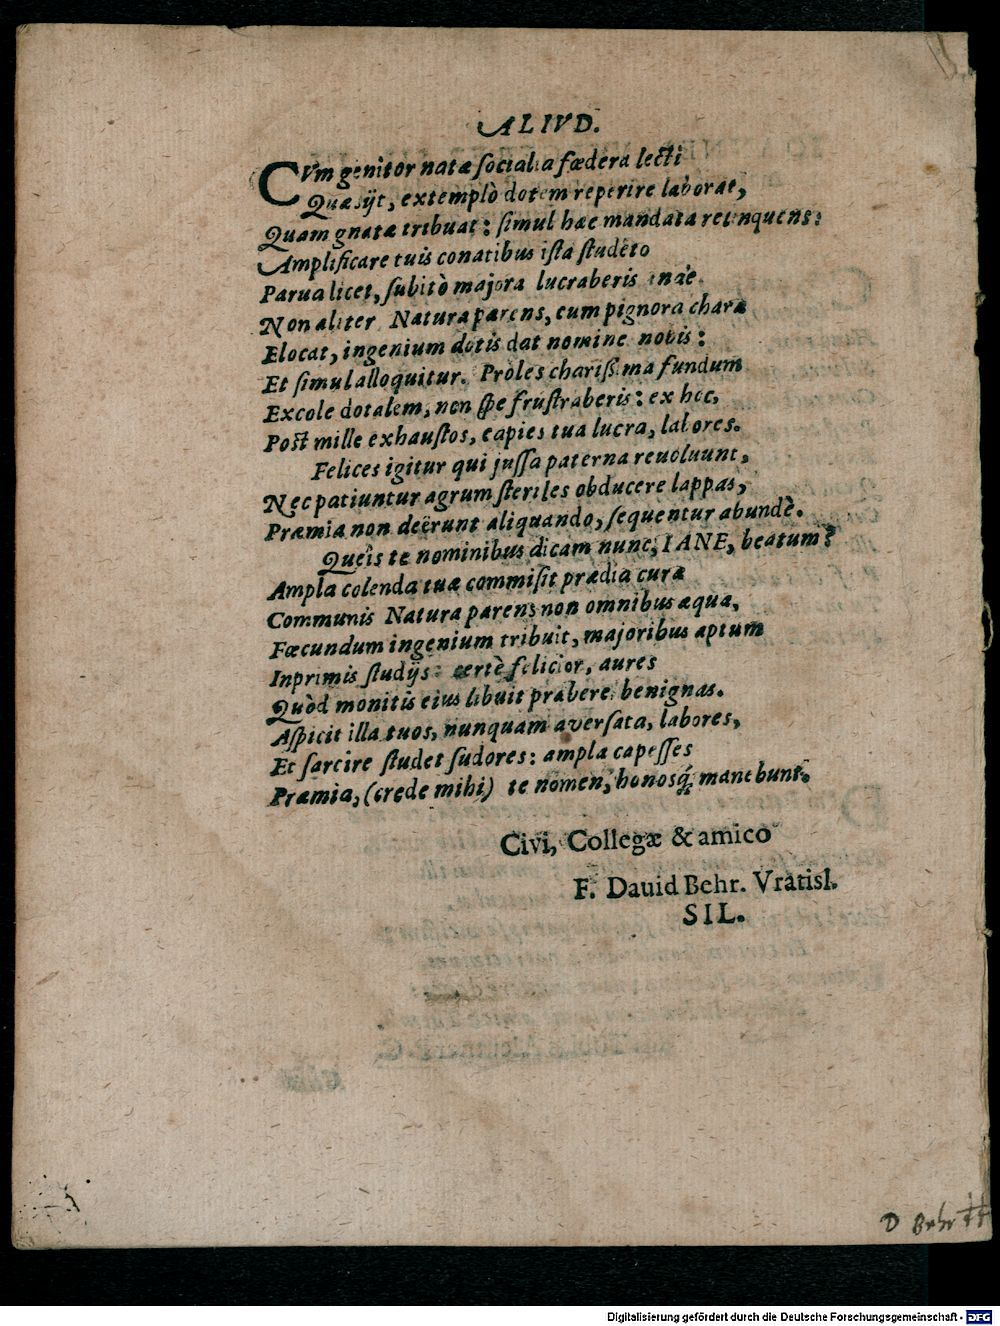 ALIVD.
CVm genitor natæ socialia fœdera lecti
Quæsijt, extemplò dotem reperire laborat,
Quam gnatæ tribuat: simul hæc mandata relinquens:
Amplificare tuis conatibus ista studeto
Parua licet, subitò majora lucraberis inde.
Non aliter Natura parens, cum pignora chara
Elocat, ingenium dotis dat nomine nobis:
Et simul alloquitur. Proles charißima fundum
Excole dotalem, non spe frustraberis: ex hoc,
Post mille exhaustos, capies tua lucra, labores.
Felices igitur qui jussa paterna reuoluunt,
Nec patiuntur agrum steriles obducere lappas,
Præmia non deërunt aliquando, sequentur abundè.
Queîs te nominibus dicam nunc, IANE, beatum?
Ampla colenda tuæ commisit prædia curæ
Communis Natura parens non omnibus æqua,
Fœcundum ingenium tribuit, majoribus aptum
Inprimis studijs: certè felicior, aures
Quòd monitis eius libuit præbere benignas.
Aspicit illa tuos, nunquam aversata, labores,
Et sarcire studet sudores: ampla capesses
Præmia, (crede mihi) te nomen, honosq́; manebunt.
Civi, Collegæ & amico
F. Dauid Behr. Vratisl.
SIL.
D Behr
Digitalisierung gefördert durch die Deutsche Forschungsgemeinschaft - DFG